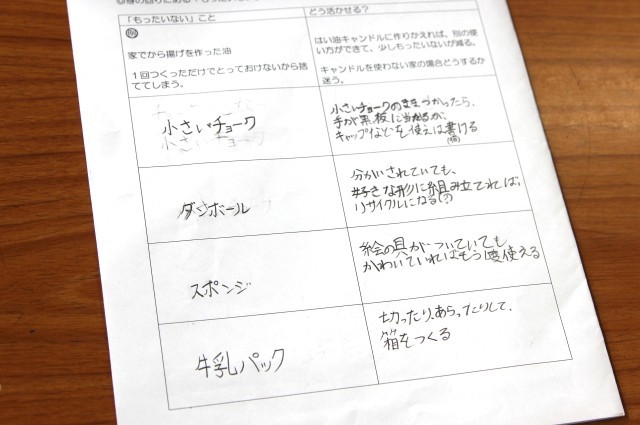 「もったいない」こと
どう活かせる？
例
家でから揚げを作った油
１回つくっただけでとっておけないから捨
ててしまう。
はい油キャンドルに作りかえれば、別の使
い方ができて、少しもったいないが減る。
キャンドルを使わない家の場合どうするか
迷う。
小さいチョーク
小さいチョークのままつかったら、
手が黒板に当たるが、
キャップなどを使えば書ける
ダンボール
分かいされていても、
好きな形に組み立てれば、
リサイクルになる(?)
スポンジ
絵の具がついていても
かわいていればもう1度使える
牛乳パック
切ったり、あらったりして、
箱をつくる